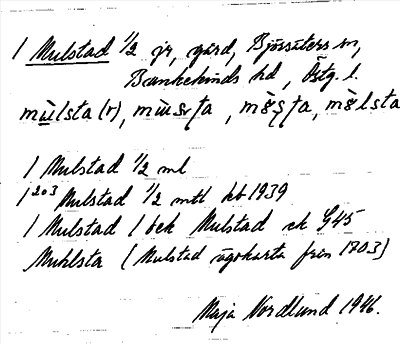 1 Mulstad 1/2 jr, gård, Björsäters sn,
Bankekinds hd, Östg. l.
1 Mulstad 1/2 ml
1²⁰³ Mulstad 1/2 mtl hb 1939
1 Mulstad 1 bek Mulstad ek G45
Muhlsta (Mulstad ägokarta från 1703)
Maja Nordlund 1946.